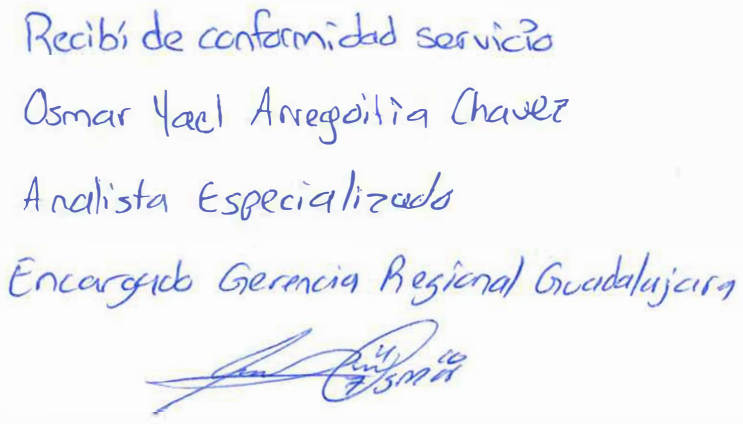 Recibí de conformidad servicio
Osmar Yael Arregoitia Chavez
Analista Especializado
Encargado Gerencia Regional Guadalajara